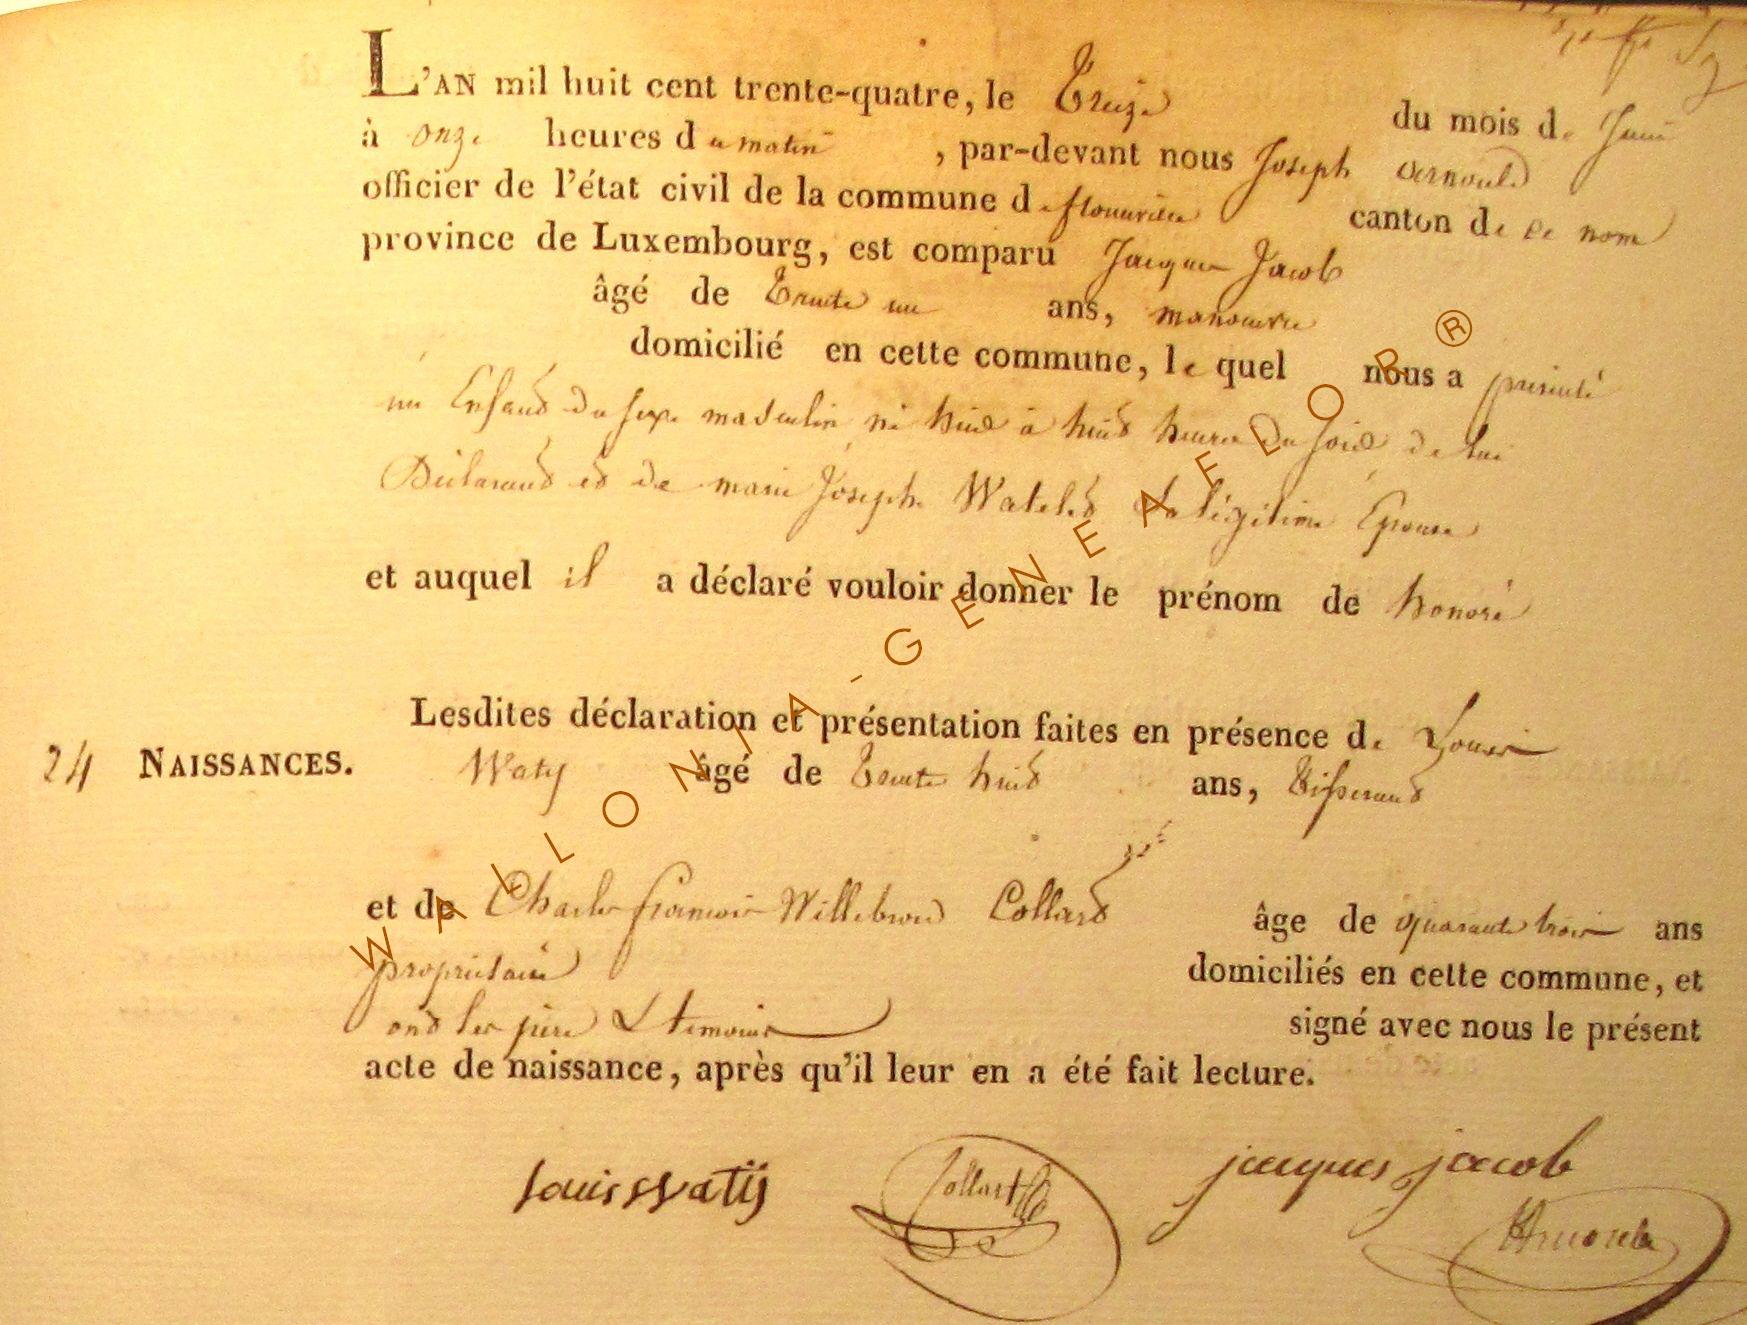 L'AN mil huit cent trente-quatre, le Treize du mois de Juin
à onze heures du matin, par-devant nous Joseph Arnould
officier de l'état civil de la commune de florenville canton de ce nom
province de Luxembourg, est comparu Jacques Jacob
âgé de Trente un ans, manoeuvre
domicilié en cette commune, le quel nous a présenté
un Enfant du sexe masculin né hier à huit heures du soir de lui
Déclarant et de marie Joseph Watelet Sa légitime Epouse
et auquel il a déclaré vouloir donner le prénom de honoré
Lesdites déclaration et présentation faites en présence de Louis
24 NAISSANCES. Waty âgé de Trente huit ans, Tisserand
et de Charles françois Willebrord Collard âge de quarante trois ans
propriétaire domiciliés en cette commune, et
ont les père & temoins signé avec nous le présent
acte de naissance, après qu'il leur en a été fait lecture.
Louis Watij Collart jacques jacob
WALLONIA-GENEAFLOR®